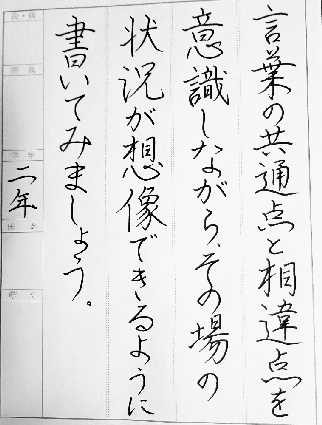 言葉の共通点と相違点を
意識しながら、その場の
状況が想像できるように
書いてみましょう。
二年